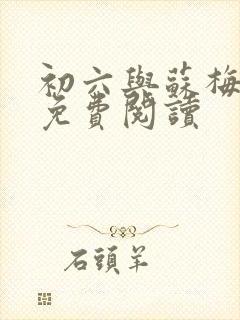 初六與蘇梅
免費閱讀
石頭羊